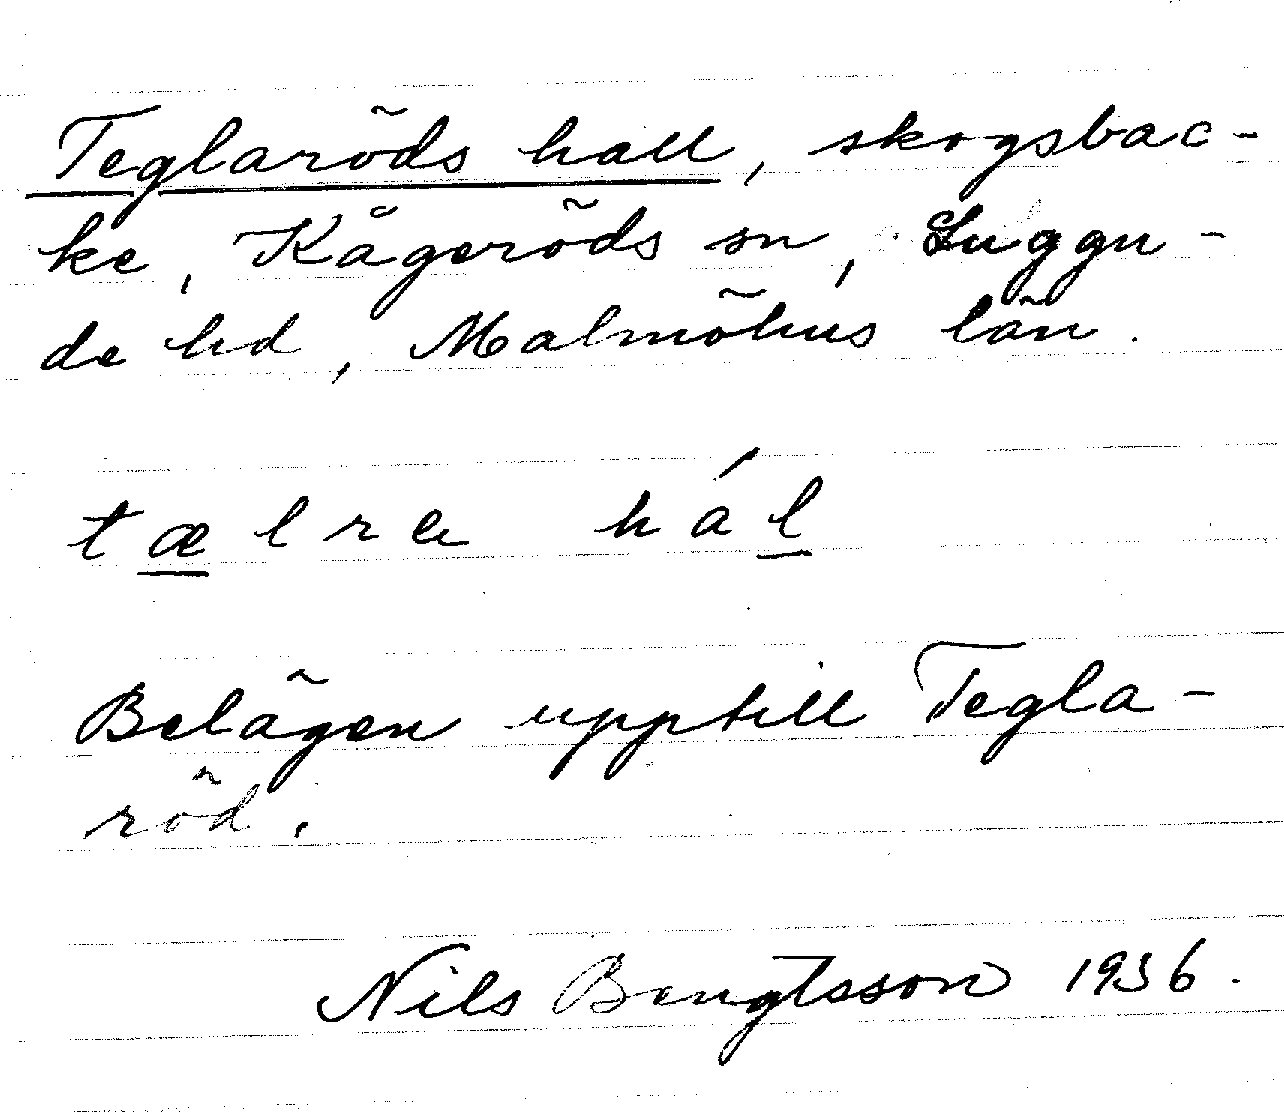 Teglaröds hall, skogsbac-
ke, Kågeröds sn, Luggu-
de hd, Malmöhus län.
tælra hál
Belägen upptill Tegla-
röd.
Nils Bengtsson 1936.